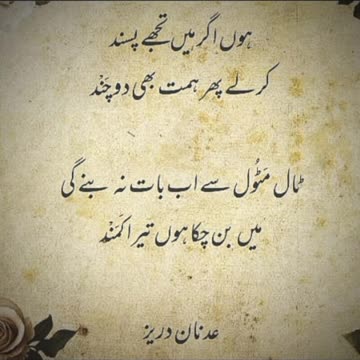 ہوں اگر میں تجھے پسند
کر لے پھر ہمت بھی دو چَنْد
ٹال مَٹُول سے اب بات نہ بنے گی
میں بن چکا ہوں تیرا کَمَنْد
عدنان دریز